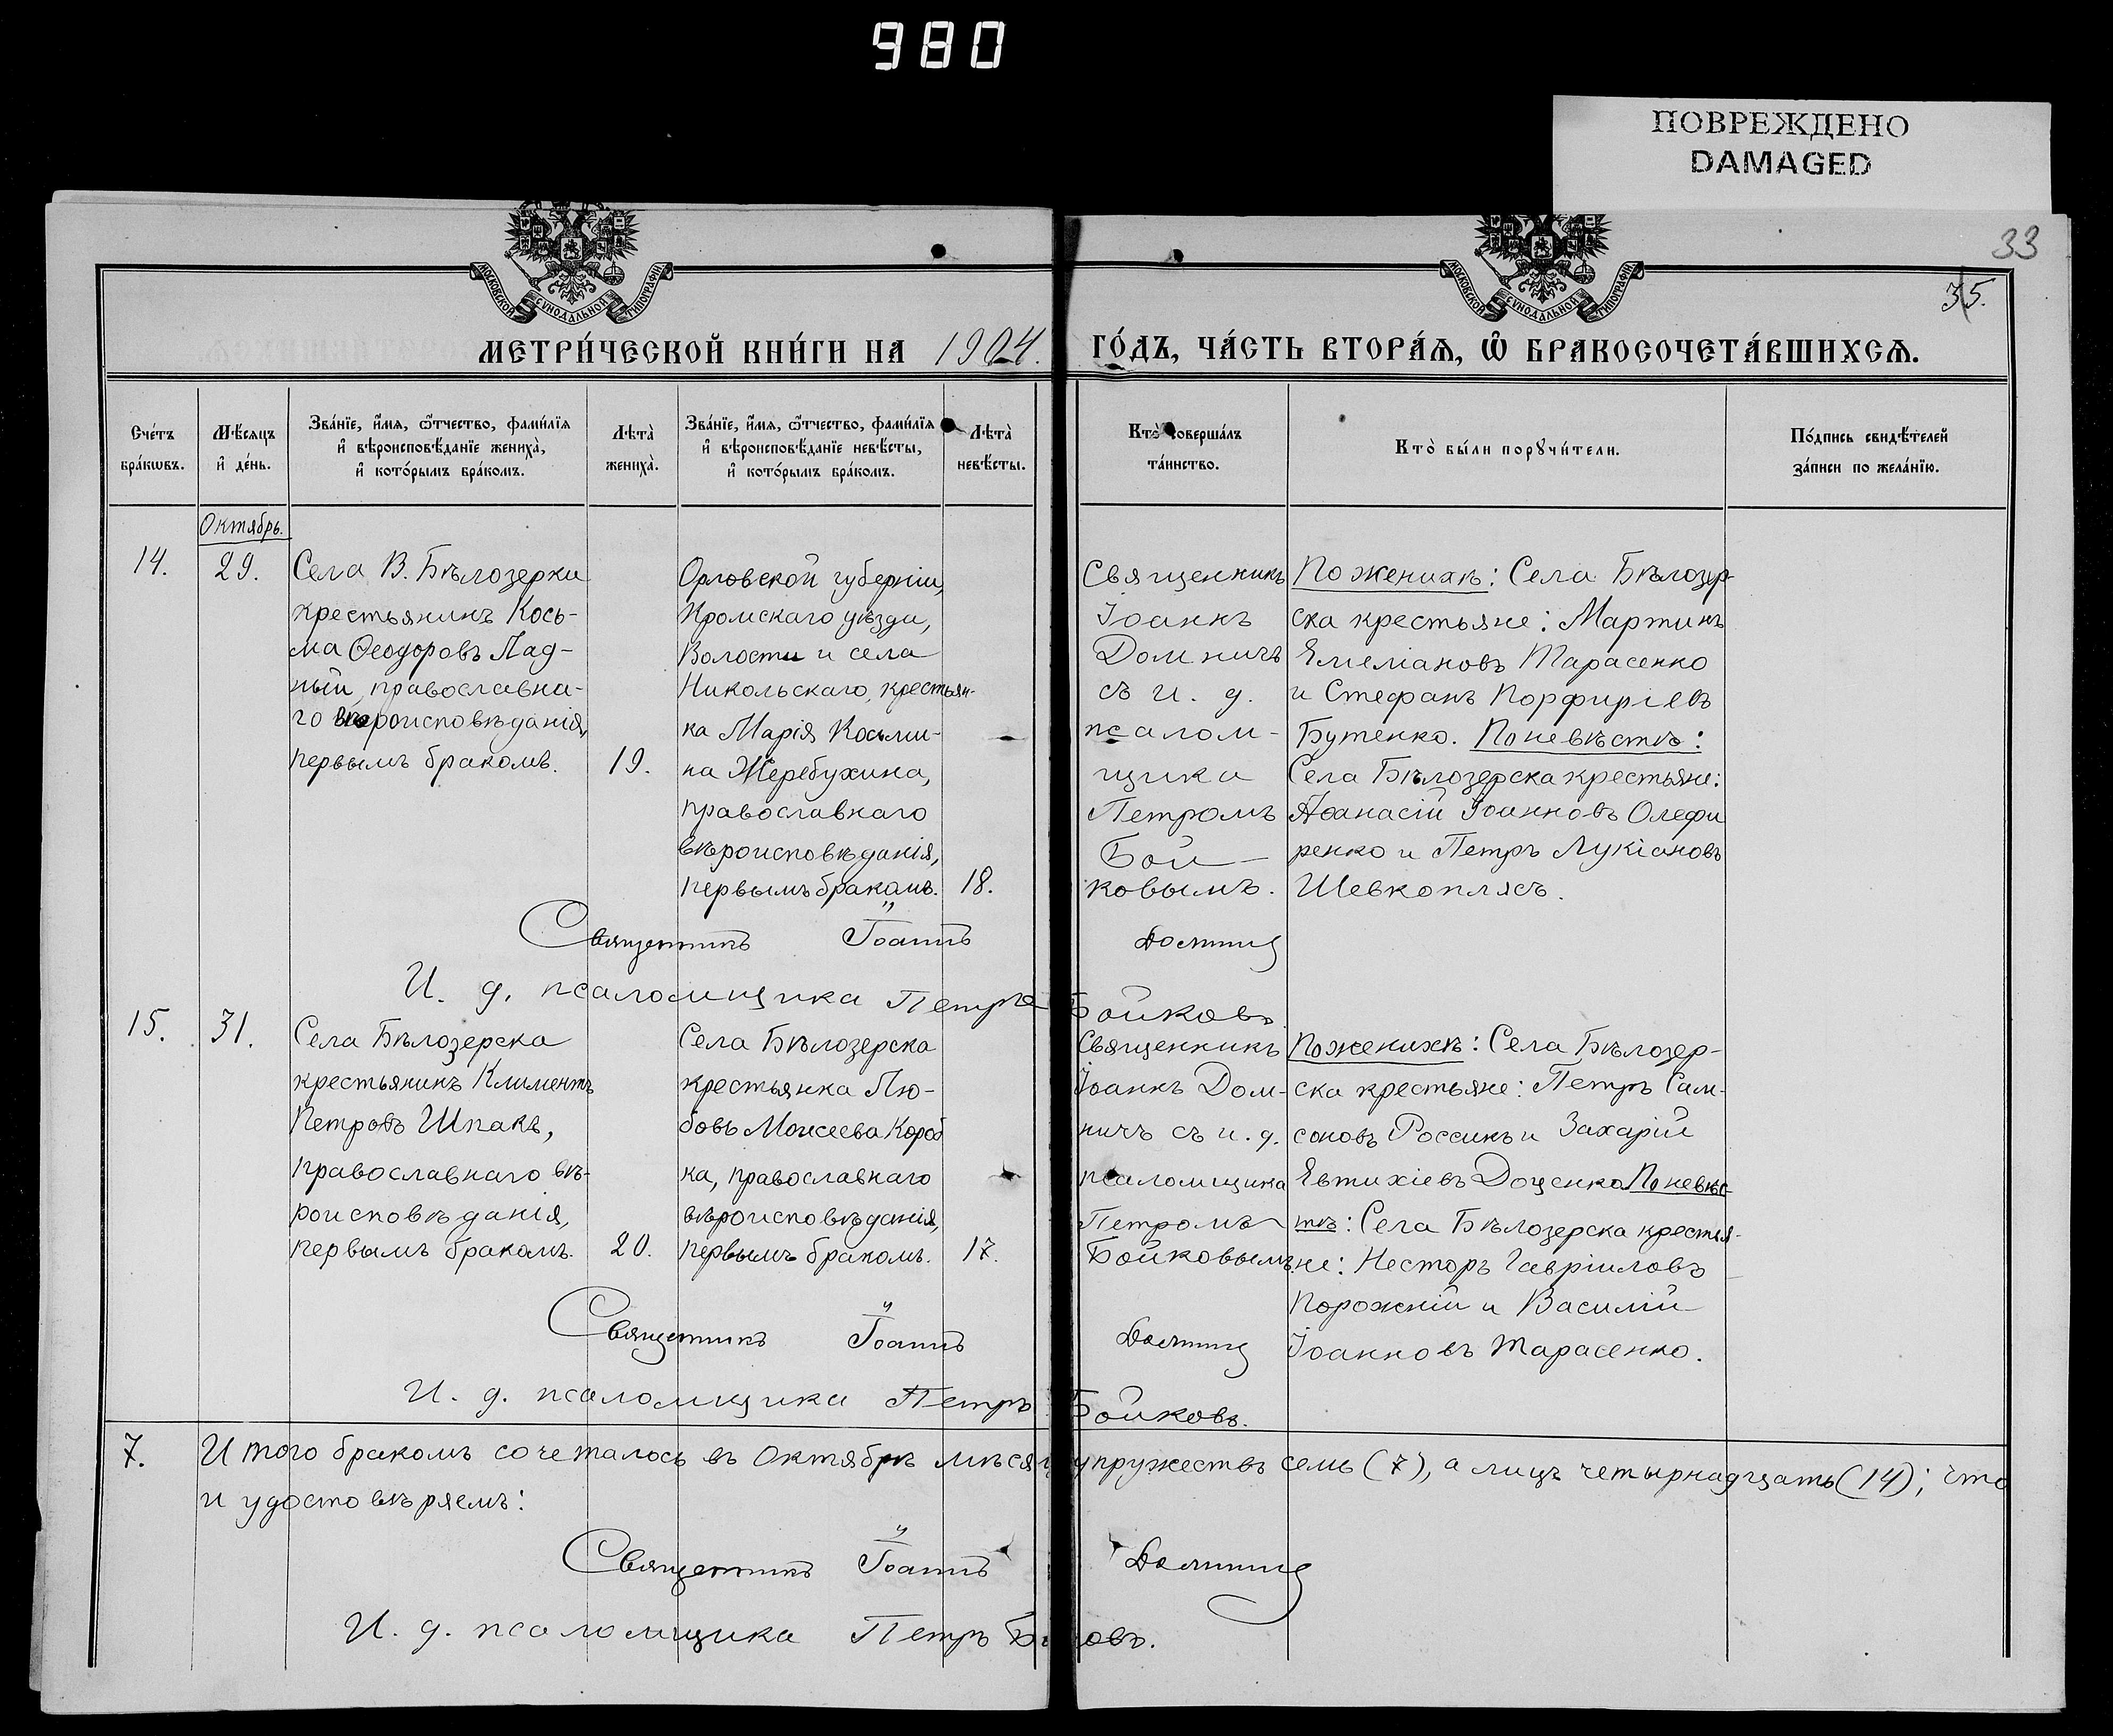 980
ПОВРЕЖДЕНО
DAMAGED
33
35.
МОСКОВСКОЙ СѴНОДАЛЬНОЙ ТИПОГРАФІИ
МОСКОВСКОЙ СѴНОДАЛЬНОЙ ТИПОГРАФІИ
МЕТРИ́ЧЕСКОЙ КНИ́ГИ НА 1904. ГО́ДЪ, ЧА́СТЬ ВТОРА́Ѧ, Ѿ БРАКОСОЧЕТА́ВШИХСѦ.
Сче́тъ
бра́кѡвъ.
Мѣ́сѧцъ
и҆ де́нь.
Зва́нїе, и҆́мѧ, ѻ҆́тчество, фами́лїѧ
и҆ вѣроисповѣ́данїе жениха̀,
и҆ кото́рымъ бра́комъ.
Лѣта̀
жениха̀.
Зва́нїе, и҆́мѧ, ѻ҆́тчество, фами́лїѧ
и҆ вѣроисповѣ́данїе невѣ́сты,
и҆ кото́рымъ бра́комъ.
Лѣта̀
невѣ́сты.
Кто̀ соверша́лъ
та́инство.
Кто̀ бы́ли порꙋчи́тели.
По́дпись свидѣ́телей
за́писи по жела́нїю.
Октябрь.
14.
29.
Села В. Бѣлозерки
крестьянинъ Кось-
ма Ѳеодоровъ Лад-
ный, православна-
го вѣроисповѣданія,
первымъ бракомъ.
19.
Орловской губерніи,
Кромскаго уѣзда,
Волости и села
Никольскаго, крестьян-
ка Марія Косьми-
на Жеребухина,
православнаго
вѣроисповѣданія,
первымъ бракомъ.
18.
Священникъ
Іоаннъ
Домничъ
съ и. д.
псалом-
щика
Петромъ
Бой-
ковымъ.
По женихѣ: Села Бѣлозер-
ска крестьяне: Мартинъ
Емеліановъ Тарасенко
и Стефанъ Порфиріевъ
Бутенко. По невѣстѣ:
Села Бѣлозерска крестьяне:
Аѳанасій Іоанновъ Олефи
ренко и Петръ Лукіановъ
Шевкоплясъ.
Священникъ Іоаннъ Домничъ
И. д. псаломщика Петръ Бойковъ
15.
31.
Села Бѣлозерска
крестьянинъ Климентъ
Петровъ Шпакъ,
православнаго вѣ-
роисповѣданія,
первымъ бракомъ.
20.
Села Бѣлозерска
крестьянка Лю-
бовь Моисеева Короб
ка, православнаго
вѣроисповѣданія,
первымъ бракомъ.
17.
Священникъ
Іоаннъ Дом-
ничъ съ и. д.
псаломщика
Петромъ
Бойковымъ.
По женихѣ: Села Бѣлозер-
ска крестьяне: Петръ Сам-
соновъ Россикъ и Захарій
Евтихіевъ Доценко По невѣс-
тѣ: Села Бѣлозерска крестья-
не: Несторъ Гавріиловъ
Порожній и Василій
Іоанновъ Тарасенко.
Священникъ Іоаннъ Домничъ
И. д. псаломщика Петръ Бойковъ.
7.
Итого бракомъ сочеталось въ Октябрѣ мѣсяцѣ супружествъ семь (7), а лицъ четырнадцать (14); что
и удостовѣряемъ:
Священникъ Іоаннъ Домничъ
И. д. псаломщика Петръ Бойковъ.